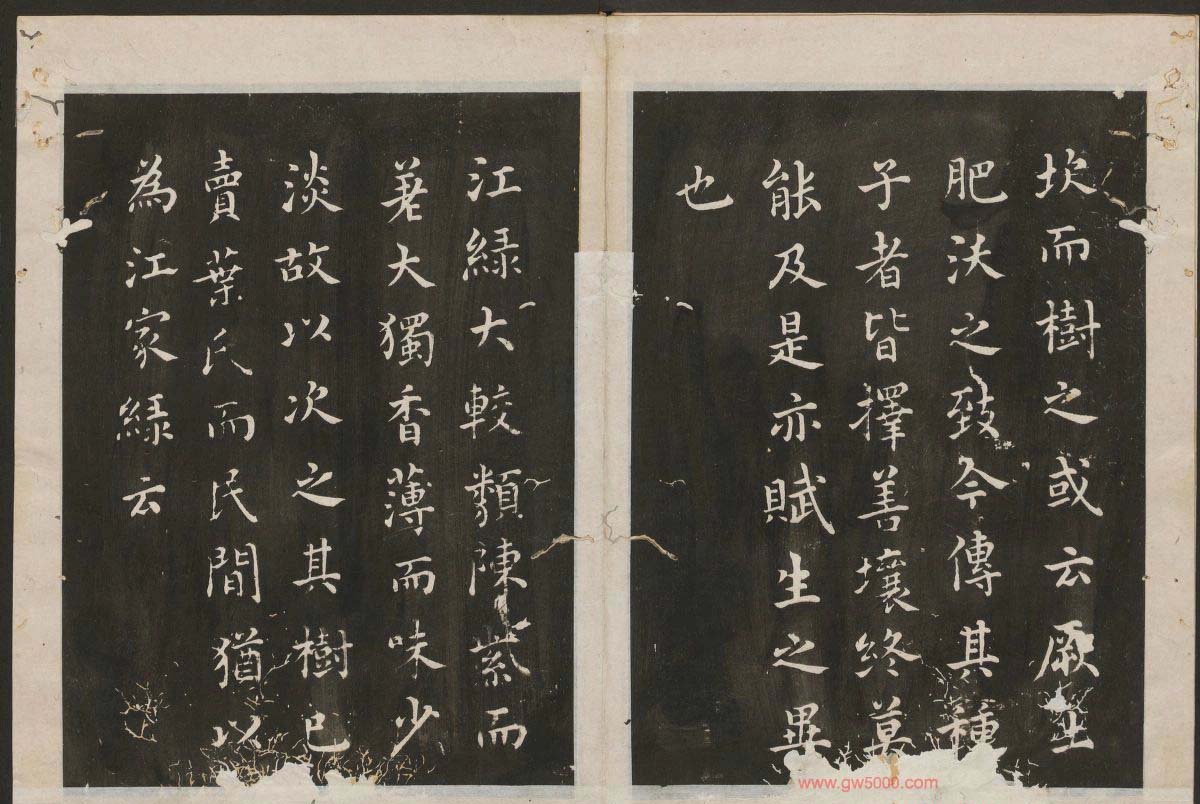 坎而樹之或云厥土
肥沃之致今傳其種
子者皆擇善壤終莫
能及是亦賦生之異
也
江綠大較類陳紫而
差大獨香薄而味少
淡故以次之其樹已
賣葉氏而民間猶以
為江家綠云
www.gw5000.com